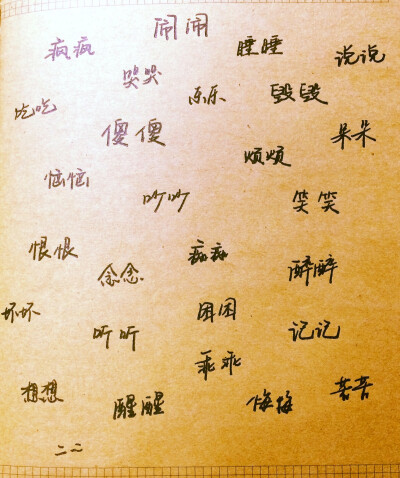 闹闹
疯疯 睡睡 说说
哭哭
吃吃 乐乐 毁毁
傻傻 呆呆
烦烦
恼恼 吖吖 笑笑
恨恨 痴痴
念念 醉醉
坏坏 困困
听听 记记
乖乖
想想 醒醒 悔悔 苦苦
二二